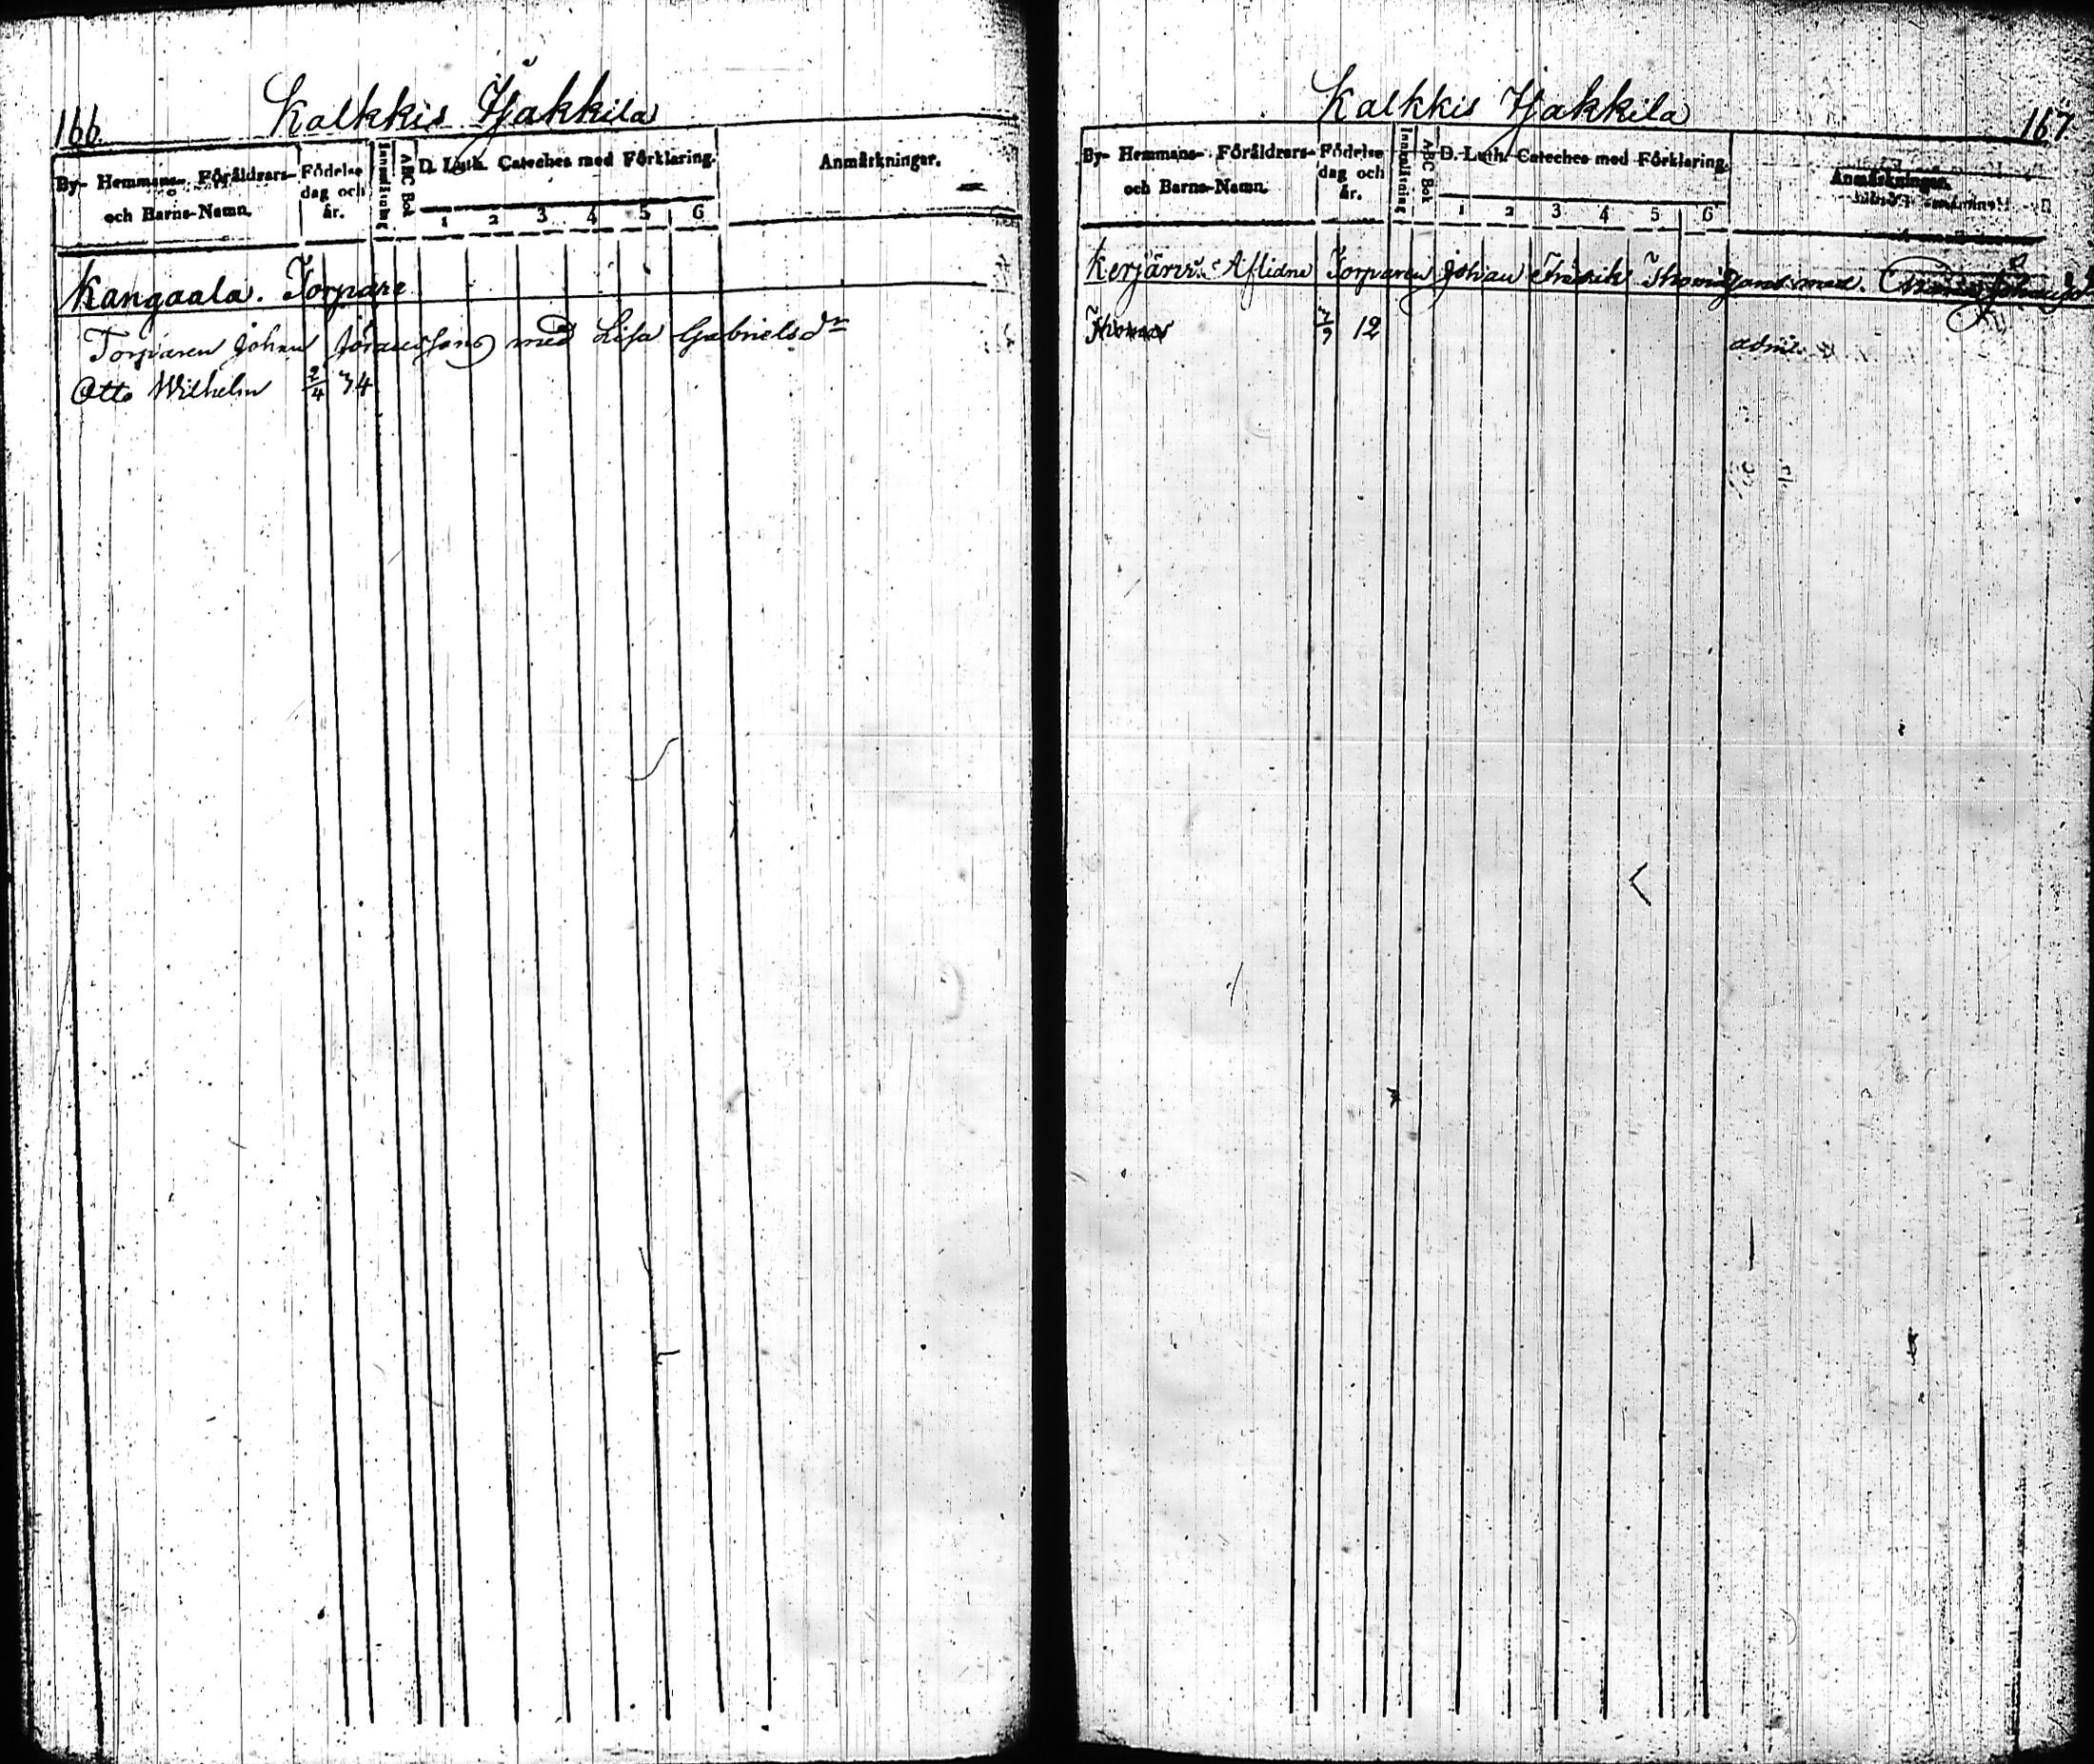 166.
Kalkkis Hakkila
By- Hemmans- Föräldrars- och Barns-Namn.
Födelse dag och år.
Innanläsning
ABC Bok
D. Luth. Cateches med Förklaring.
1 2 3 4 5 6
Anmärkningar.
Kangaala. Torpare
Torparen Johan Göransson med Lisa Gabrielsdr
Otto Wilhelm 2/4 34
Kalkkis Hakkila
167
By- Hemmans- Föräldrars- och Barns-Namn.
Födelse dag och år.
Innanläsning
ABC Bok
D. Luth. Cateches med Förklaring.
1 2 3 4 5 6
Anmärkningar.
Aflidne Torparen Johan Fredrik Thomassons med
Thomas 7/9 12